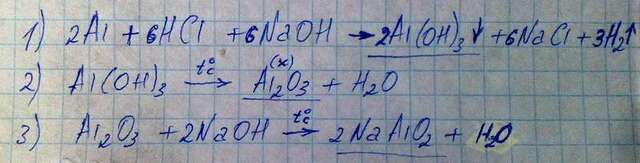 1) 2Al + 6HCl + 6NaOH → 2Al(OH)₃↓ + 6NaCl + 3H₂↑
2) Al(OH)₃ —t°c→ Al₂O₃ (x) + H₂O
3) Al₂O₃ + 2NaOH —t°c→ 2NaAlO₂ + H₂O